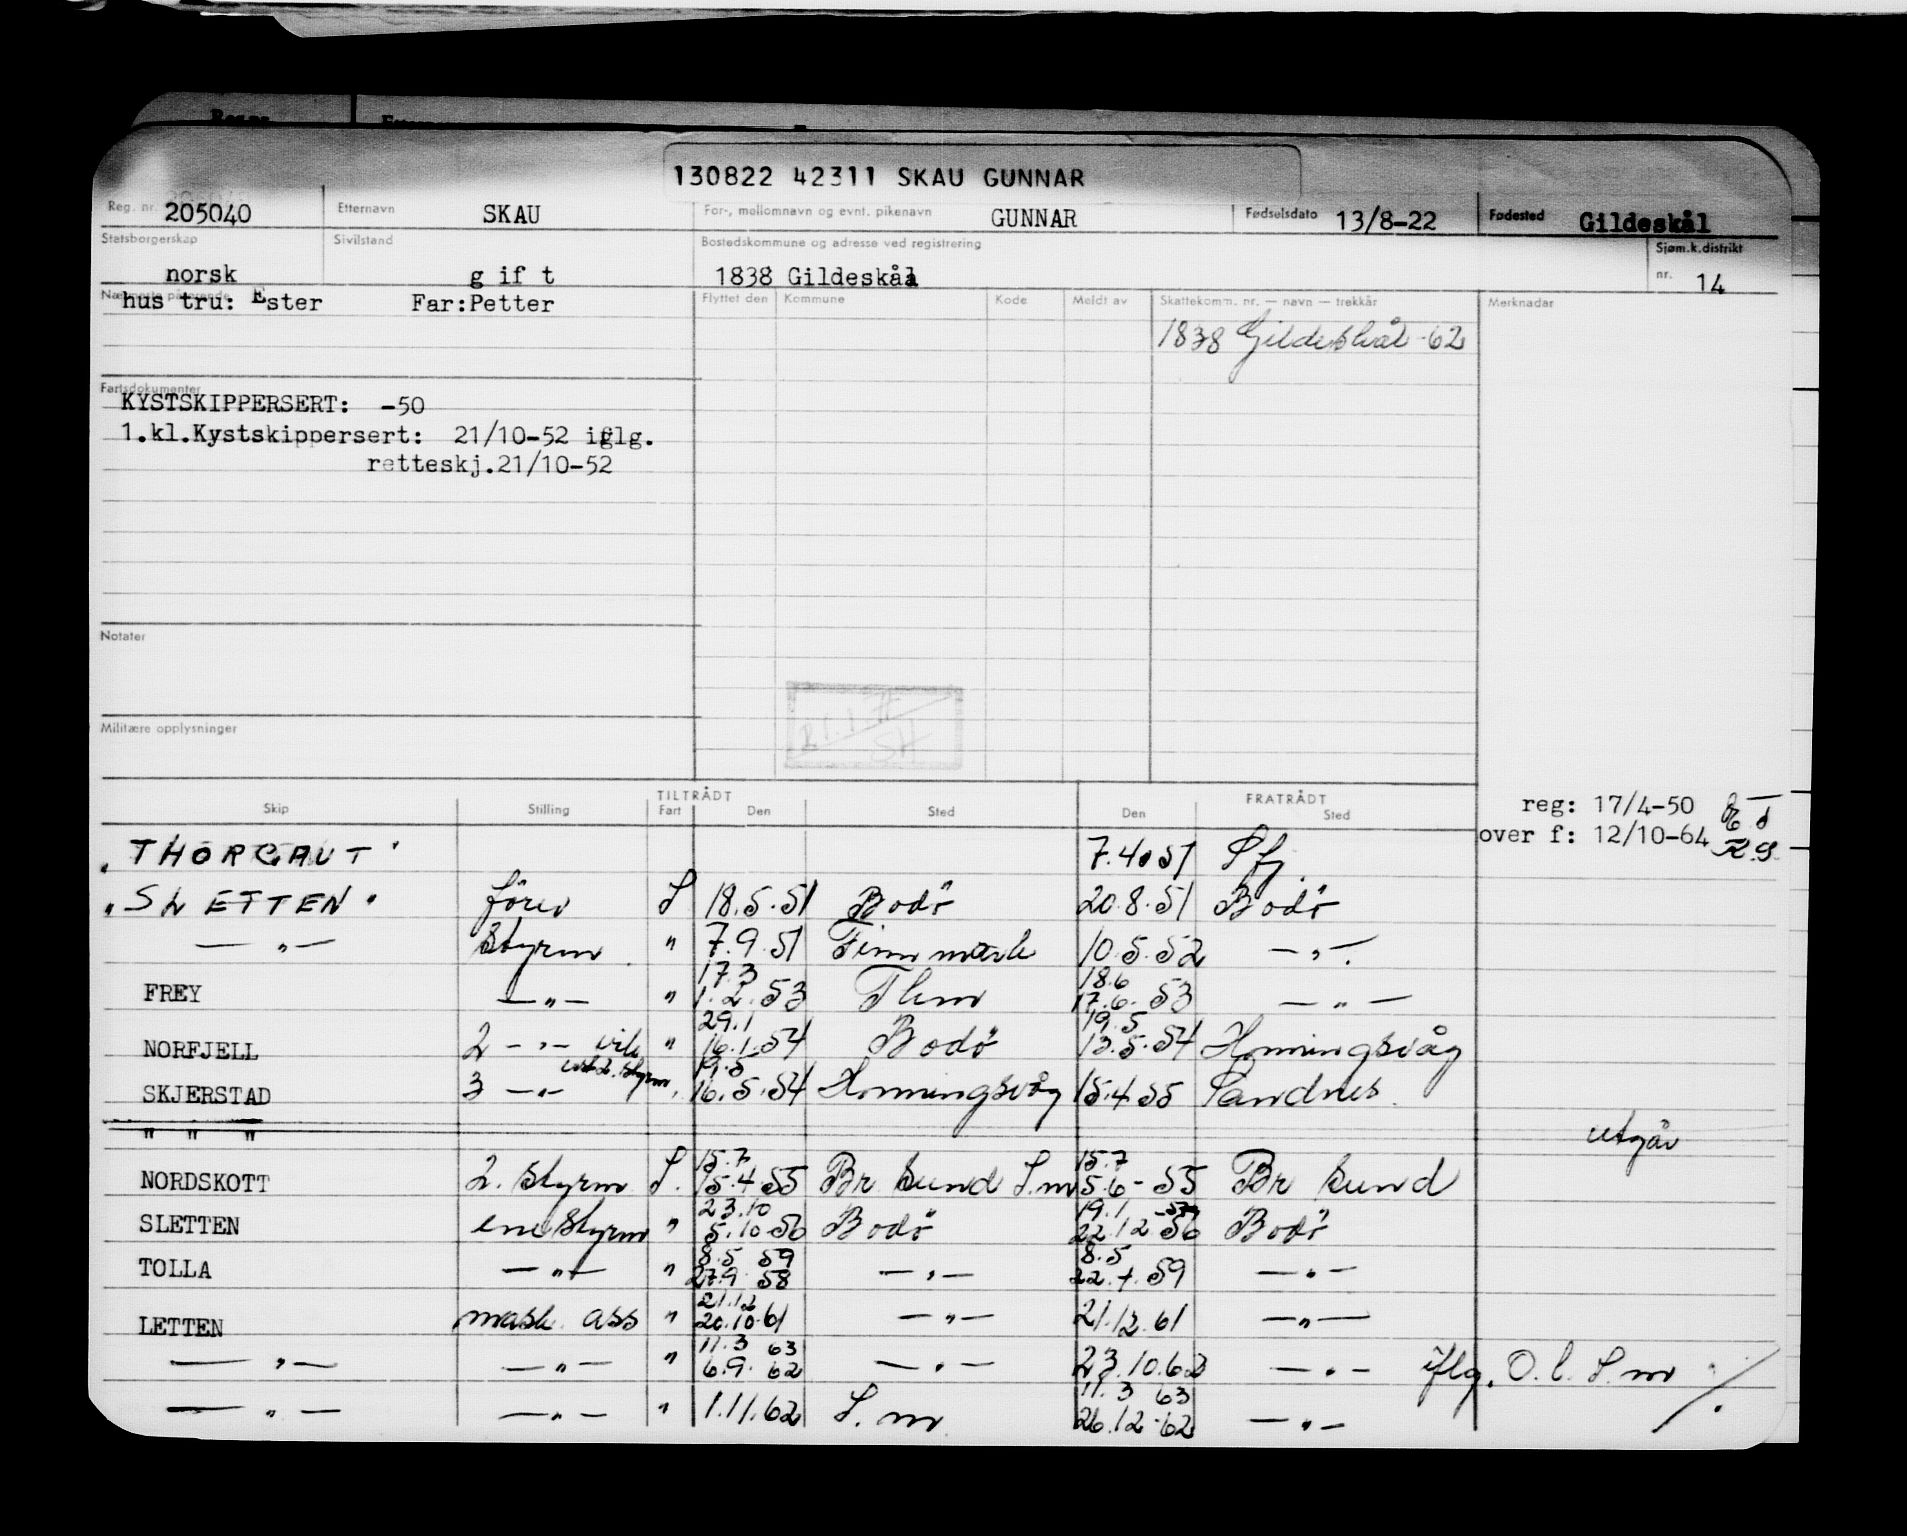 130822 42311 SKAU GUNNAR
Reg. nr. 205040 Etternavn SKAU For-, mellomnavn og evnt. pikenavn GUNNAR Fødselsdato 13/8-22 Fødested Gildeskål
Statsborgerskap Sivilstand Bostedskommune og adresse ved registrering Sjøm.k.distrikt
norsk g if t 1838 Gildeskål nr. 14
Nærmeste pårørende Flyttet den Kommune Kode Meldt av Skattekomm. nr. — navn — trekkår Merknader
hus tru: Ester Far:Petter
1838 Gildeskål -62
Fartsdokumenter
KYSTSKIPPERSERT: -50
1.kl.Kystskippersert: 21/10-52 iflg.
retteskj.21/10-52
Notater
Militære opplysninger
TILTRÅDT FRATRÅDT
Skip Stilling Fart Den Sted Den Sted
reg: 17/4-50
over f: 12/10-64
"THORGAUT" 7.4.51 Sfj.
"SLETTEN" förer S 18.5.51 Bodö 20.8.51 Bodö
— " — Styrm " 7.9.51 Finnmark 10.5.52 — " —
17.3 18.6
FREY — " — " 1.2.53 Thm 17.6.53 — " —
29.1 19.5
NORFJELL 2 — " — vik " 16.1.54 Bodö 13.5.54 Honningsvåg
19.5
SKJERSTAD 3 — " — 16.5.54 Honningsvåg 15.4.55 Sandnes
" " " utgår
15.7 15.7
NORDSKOTT 2. Styrm S. 15.4 55 Br sund S.m 5.6-55 Br sund
23.10 19.1 -57
SLETTEN ene styrm " 5.10 56 Bodö 22.12 56 Bodö
8.5 59 8.5
TOLLA — " — " 27.9 58 — " — 22.4.59 — " —
21.12
LETTEN mask. ass " 20.10.61 — " — 21.12.61 — " —
11.3 63
— " — — " — " 6.9.62 — " — 23.10.62 — " — iflg. O.l. S.m
11.3 63
— " — — " — " 1.11.62 S.m 26.12-62 — " —